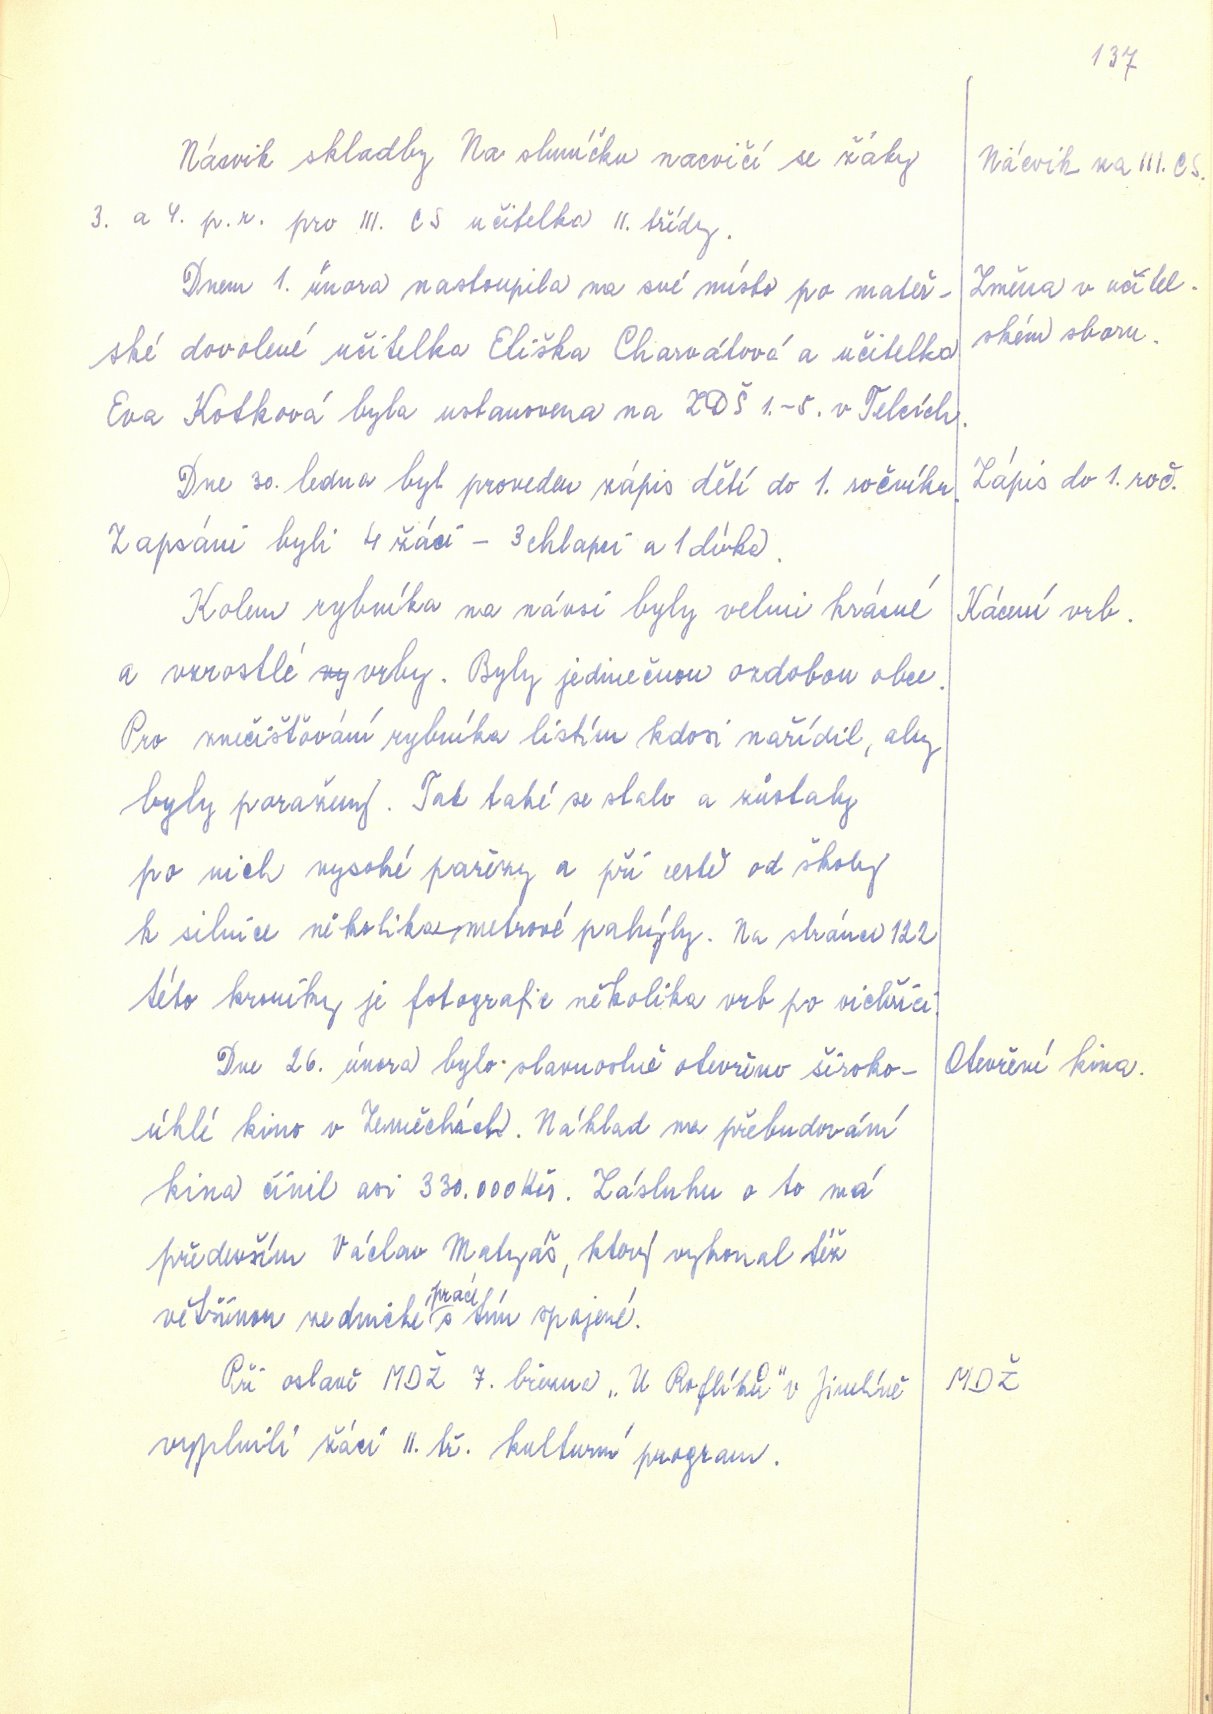 137
Nácvik skladby Na sluníčku nacvičí se žáky
Nácvik na III. CS.
3. a 4. p. r. pro III. CS učitelka II. třídy.
Dnem 1. února nastoupila na své místo po mateř-
Změna v učitel-
ské dovolené učitelka Eliška Charvátová a učitelka
ském sboru.
Eva Kotková byla ustanovena na ZDŠ 1.-5. v Telcích.
Dne 30. ledna byl proveden zápis dětí do 1. ročníku.
Zápis do 1. roč.
Zapsáni byli 4 žáci - 3 chlapci a 1 dívka.
Kolem rybníka na návsi byly velmi krásné
Kácení vrb.
a vzrostlé vy vrby. Byly jedinečnou ozdobou obce.
Pro znečišťování rybníka listím kdosi nařídil, aby
byly poraženy. Tak také se stalo a zůstaly
po nich vysoké pařezy a při cestě od školy
k silnici několika metrové pahýly. Na stránce 122
této kroniky je fotografie několika vrb po vichřici.
Dne 26. února bylo slavnostně otevřeno široko-
Otevření kina.
úhlé kino v Zeměchách. Náklad na přebudování
kina činil asi 330.000 Kčs. Zásluhu o to má
především Václav Matyáš, který vykonal též
většinou zednické práci s tím spojené.
Při oslavě MDŽ 7. března „U Roflíků" v Jimlíně
MDŽ
vyplnili žáci II. tř. kulturní program.